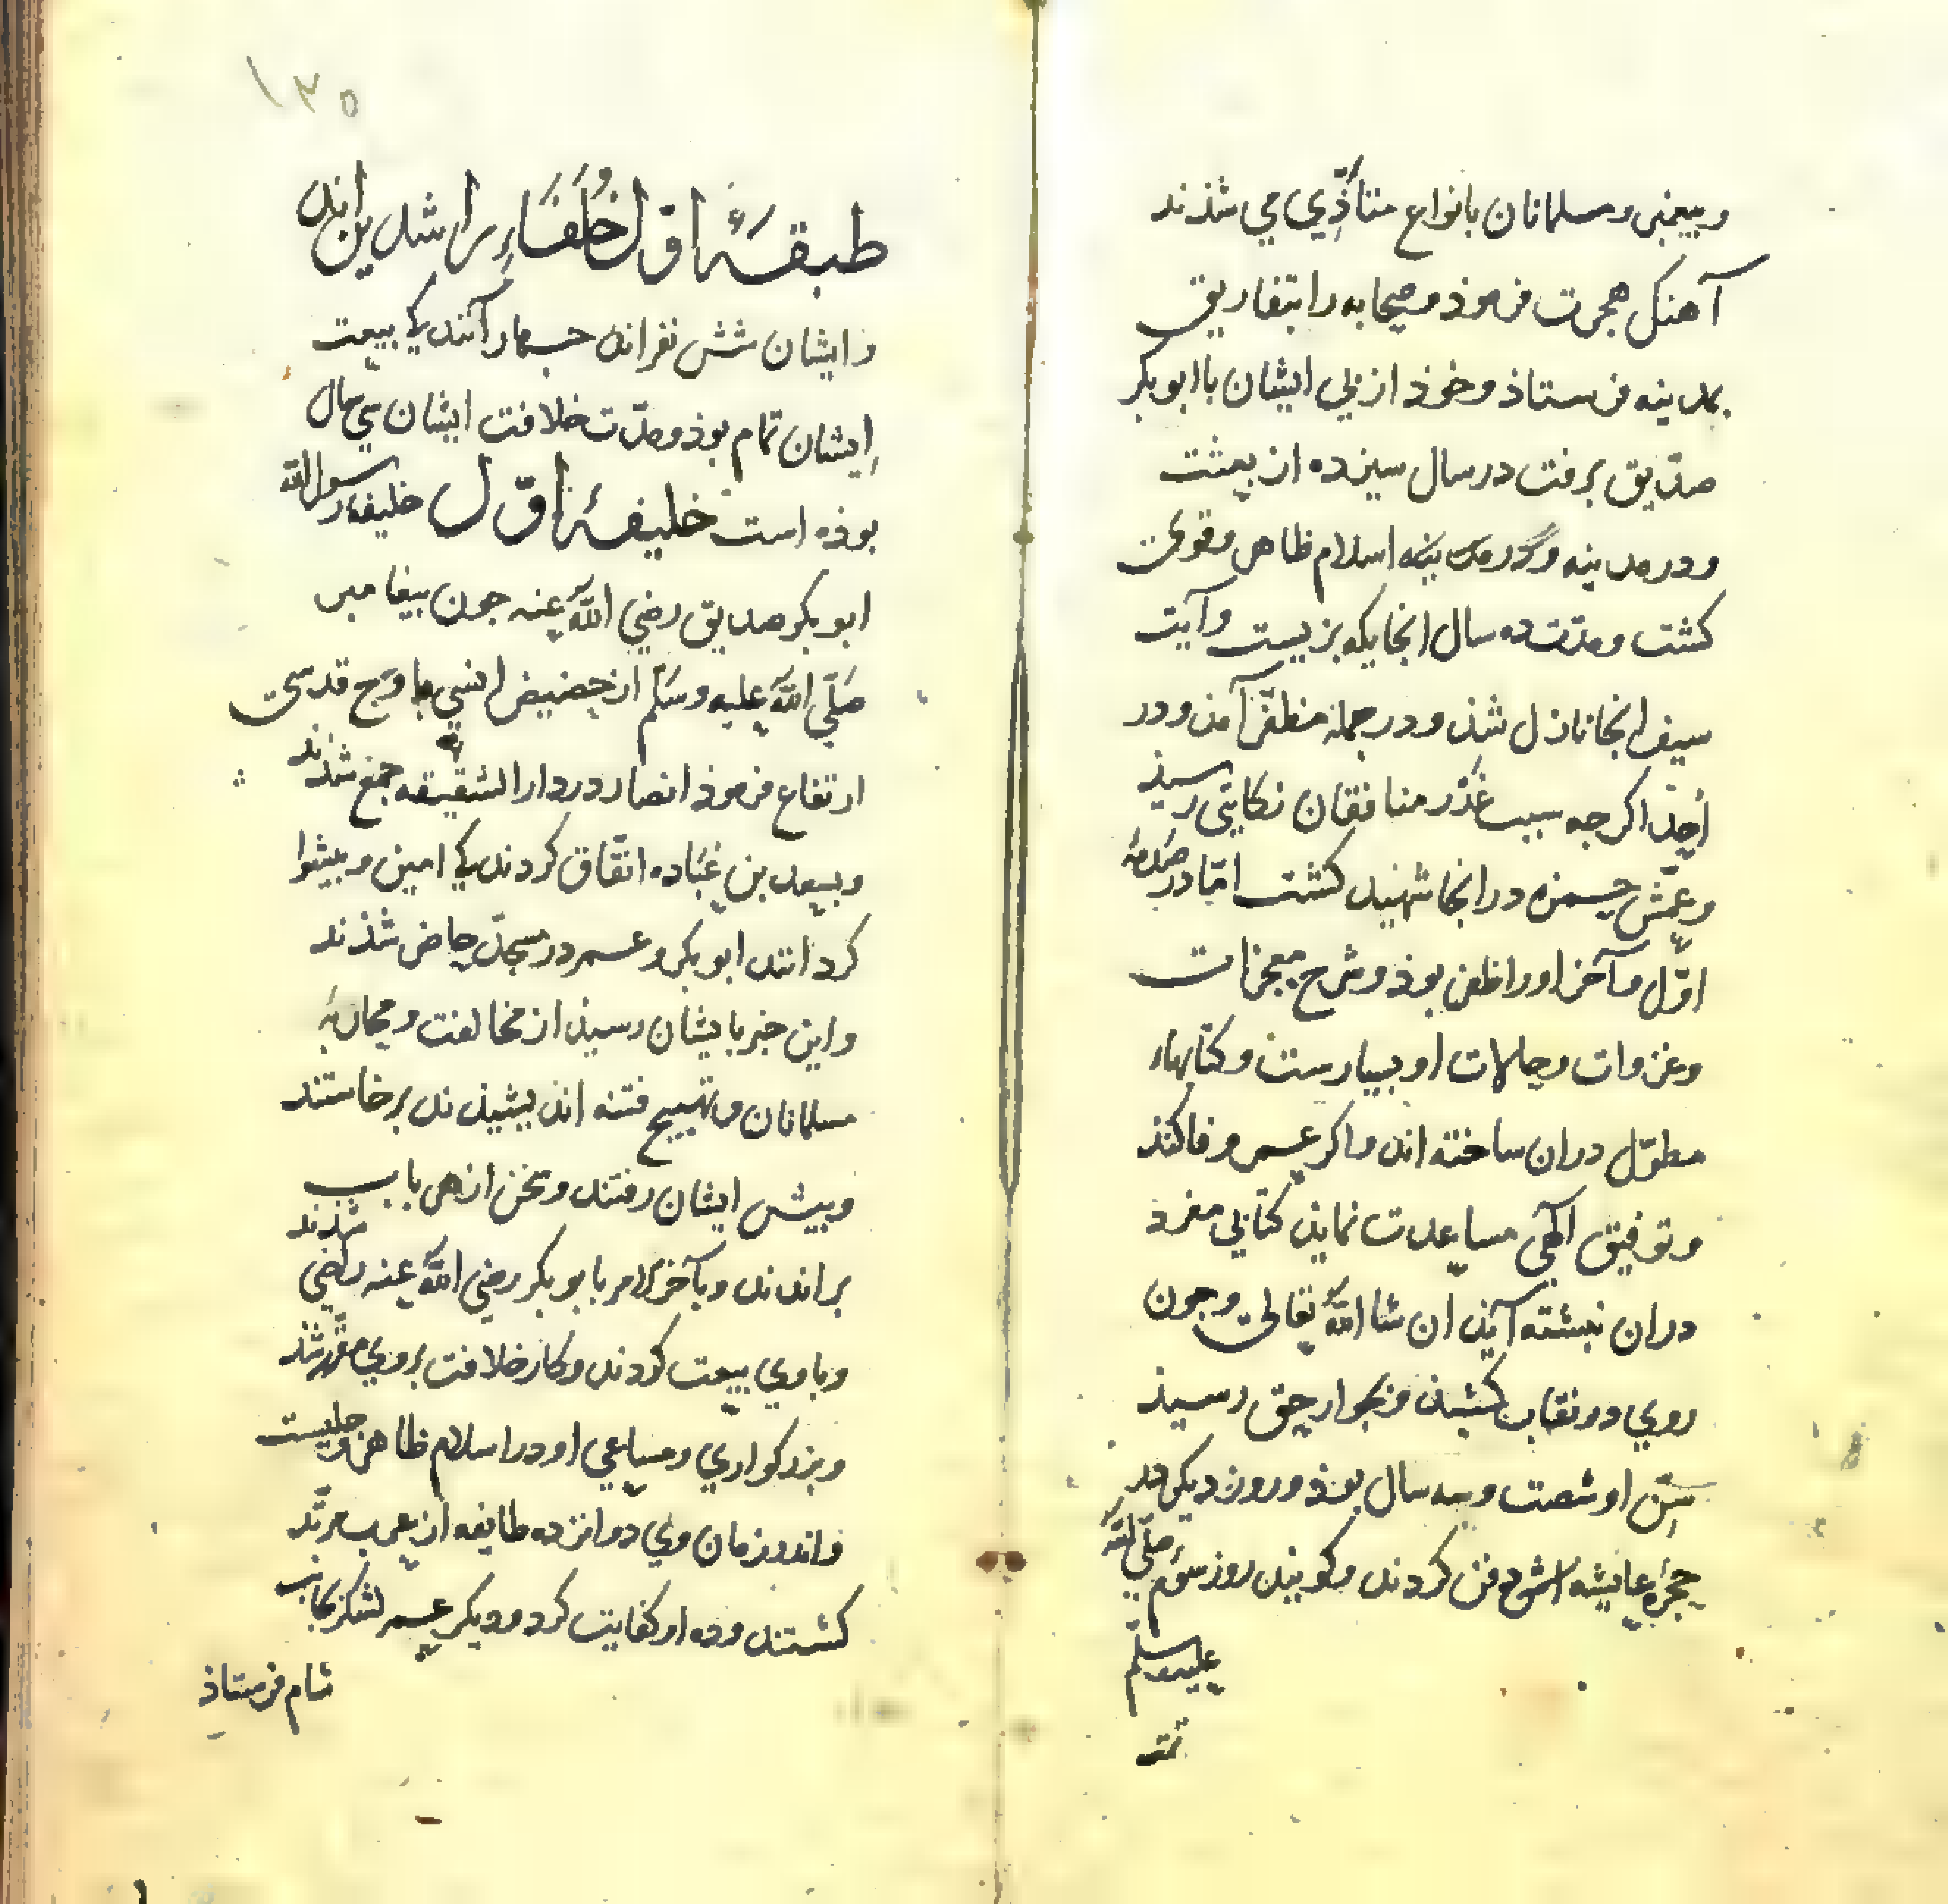 وبیغبر ومسلمانان بانواع متأذّی می شذند
آهنک هجرت فرموذ وصحابه را بتفاریق
بمدینه فرستاذ وخوذ از پی ایشان با ابوبکر
صدّیق برفت در سال سیزده از بعثت
ودر مدینه وگرد مدینه اسلام ظاهر وقوی
کشت ومدّت ده سال انجایکه بزیست وآیت
سیف انجا نازل شذ ودر جمله مظفّر آمذ ودر
اُحُد اکرجه سبب غَدْر منافقان نکایتی رسیذ
وعمّش حمزه در انجا شهید کشت امّا در صَدْمهٔ
اوّل وآخر اورا ظفر بوذ وشرح معجزات
وغزوات وحالات او بسیارست وکتابهاء
مطوّل دران ساخته اند واکر عمر وفا کند
وتوفیق الٓهی مساعدت نماید کتابی مفرد
دران نبشته آید ان شا اللّه تعالی وجون
روی در نقاب کشید وبجوار حق رسیذ
سِنّ او شصت وسه سال بوذ وروز دیکر در
حجرهٔ عایشه اش دفن کردند وکویند روز سوّم صلّی اللّه
علیه وسلّم
تمت
۱۳۵
طبقهٔ اوّل خُلَفَاءِ راشدین اند
وایشان شش نفراند جهار آنند کی بیعت
اِیشان تمام بوذ ومدّت خلافت ایشان سی سال
بوذه است خلیفهٔ اوّل خلیفهٔ رسول اللّه
ابوبکر صدیق رضی اللّه عنه جون بیغامبر
صَلّی اللّه علیه وسَلّم از حضیض انسی باوج قدسی
ارتفاع فرموذ انصار در دار الشقیقه جمع شذند
وبسعد بن عُبَاده اتّفاق کردند کی امیر وبیشوا
کردانند ابوبکر وعمر در مسجد حاضر شذند
واین خبر بایشان رسیذ از مخالفت ومحاربهٔ
مسلمانان وتهییج فتنه اندیشیذند برخاستند
وبیش ایشان رفتند وسخن از هر باب
براندند وبآخر الامر بابوبکر رضی اللّه عنه راضی شذند
وباوی بیعت کردند وکار خلافت بروی مقرّر شذ
وبزرکواری ومساعی او در اسلام ظاهر وجلیست
واندر زمان وی دوانزده طایفه از عرب مرتّد
کشتند وده ار کفایت کرد ودیکر عمر لشکر بجانب
شام فرستاذ